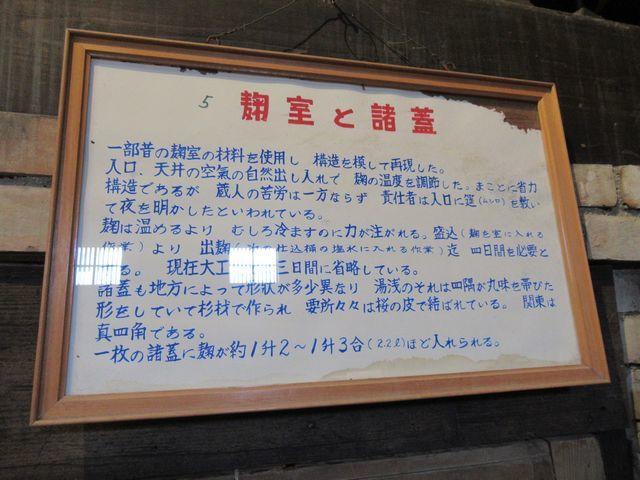 5 麹室と諸蓋
一部昔の麹室の材料を使用し 構造を模して再現した。
入口、天井の空氣の自然出し入れて 麹の温度を調節した。まことに省力
構造であるが 蔵人の苦労は一方ならず 責任者は入口に筵(ムシロ)を敷い
て夜を明かしたといわれている。
麹は温めるより むしろ冷ますのに力が注がれる。盛込(麹を室に入れる
作業)より 出麹(次の仕込桶の塩水に入れる作業)迄 四日間を必要と
る。 現在大工 三日間に省略している。
諸蓋も地方によって形状が多少異なり 湯浅のそれは四隅が丸味を帯びた
形をしていて杉材で作られ 要所々々は桜の皮で結ばれている。 関東は
真四角である。
一枚の諸蓋に麹が約1升2〜1升3合(2.2ℓ)ほど入れられる。